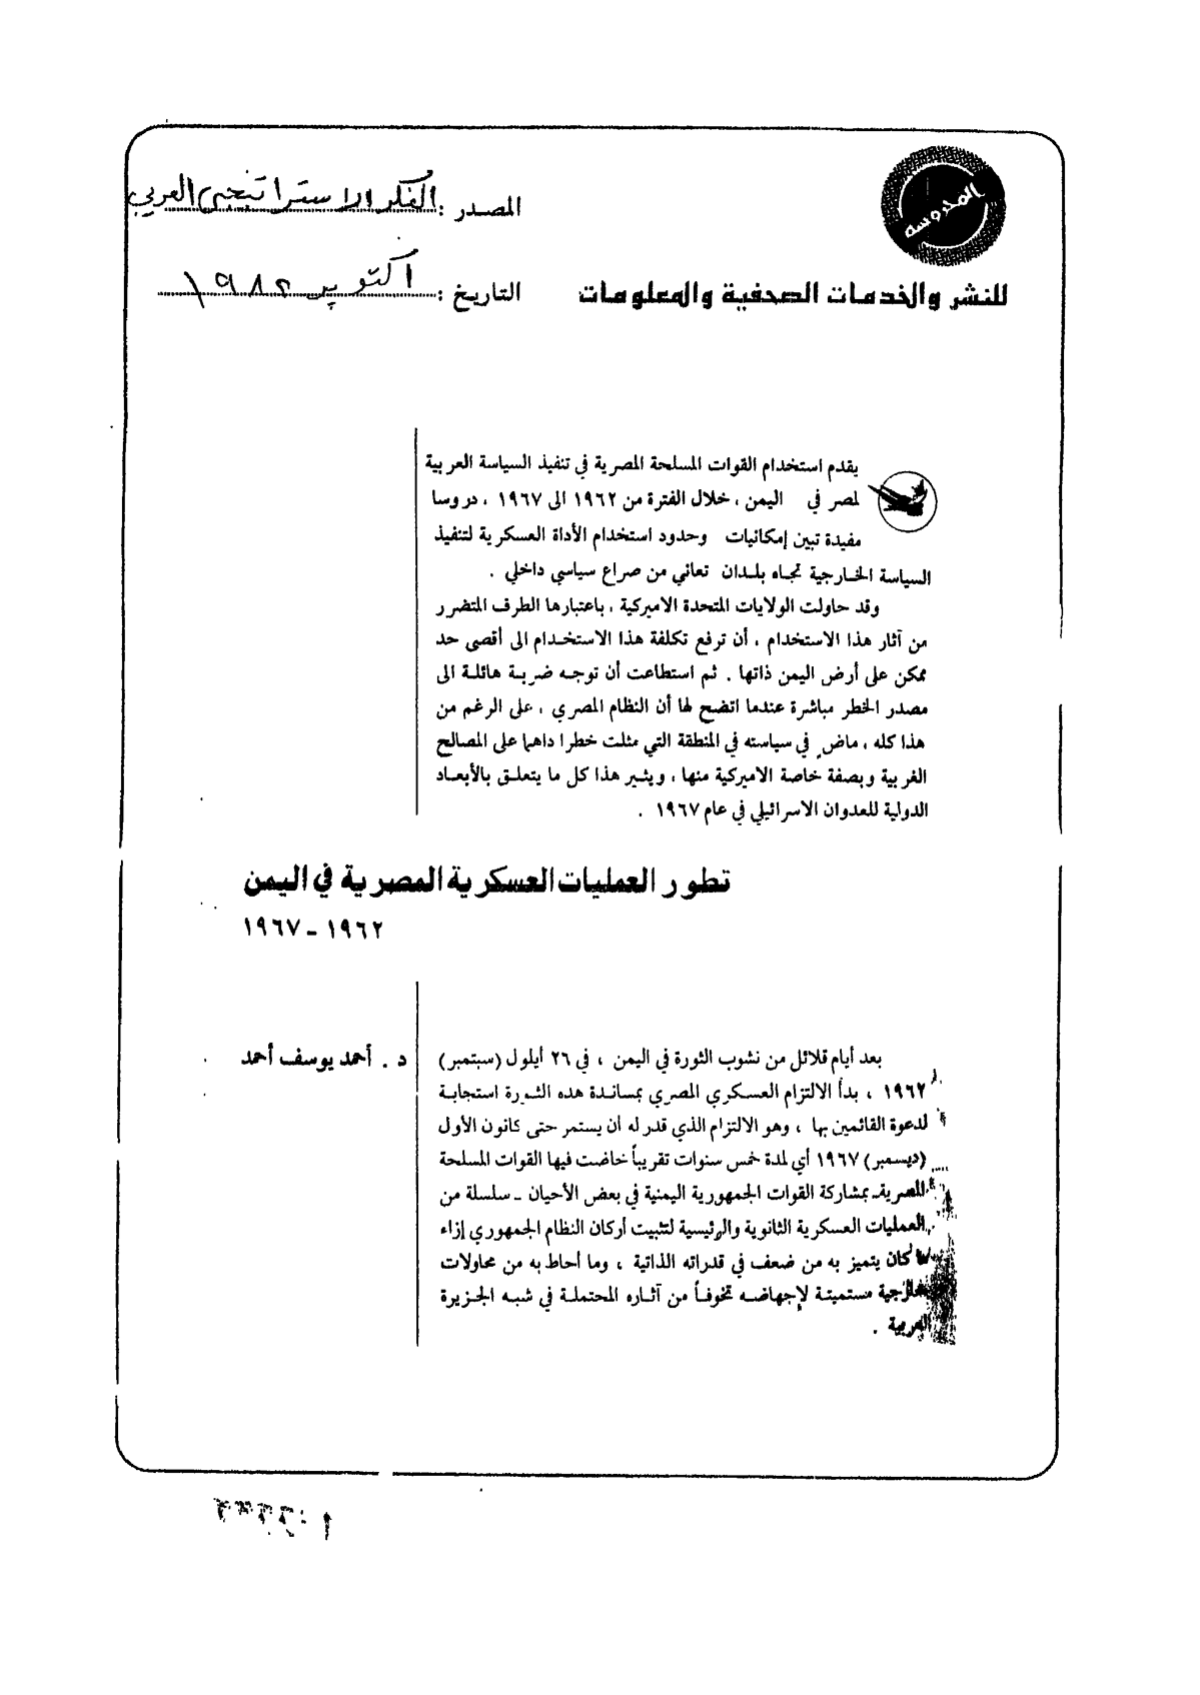 المحروسه
للنشر والخدمات الصحفية والمعلومات
المصدر : الفكر الاستراتيجى العربي
التاريخ : اكتوبر ١٩٨٢
يقدم استخدام القوات المسلحة المصرية في تنفيذ السياسة العربية
لمصر في اليمن ، خلال الفترة من ١٩٦٢ الى ١٩٦٧ ، دروسا
مفيدة تبين إمكانيات وحدود استخدام الأداة العسكرية لتنفيذ
السياسة الخارجية تجاه بلدان تعاني من صراع سياسي داخلي .
وقد حاولت الولايات المتحدة الاميركية ، باعتبارها الطرف المتضرر
من آثار هذا الاستخدام ، أن ترفع تكلفة هذا الاستخدام الى أقصى حد
ممكن على أرض اليمن ذاتها . ثم استطاعت أن توجه ضربة هائلة الى
مصدر الخطر مباشرة عندما اتضح لها أن النظام المصري ، على الرغم من
هذا كله ، ماضٍ في سياسته في المنطقة التي مثلت خطرا داهما على المصالح
الغربية وبصفة خاصة الاميركية منها ، ويثير هذا كل ما يتعلق بالأبعاد
الدولية للعدوان الاسرائيلي في عام ١٩٦٧ .
تطور العمليات العسكرية المصرية في اليمن
١٩٦٢ - ١٩٦٧
د . أحمد يوسف أحمد
بعد أيام قلائل من نشوب الثورة في اليمن ، في ٢٦ أيلول (سبتمبر)
١٩٦٢ ، بدأ الالتزام العسكري المصري بمساندة هذه الثورة استجابة
لدعوة القائمين بها ، وهو الالتزام الذي قدر له أن يستمر حتى كانون الأول
(ديسمبر) ١٩٦٧ أي لمدة خمس سنوات تقريباً خاضت فيها القوات المسلحة
المصرية - بمشاركة القوات الجمهورية اليمنية في بعض الأحيان - سلسلة من
العمليات العسكرية الثانوية والرئيسية لتثبيت أركان النظام الجمهوري إزاء
ما كان يتميز به من ضعف في قدراته الذاتية ، وما أحاط به من محاولات
خارجية مستميتة لإجهاضه تخوفاً من آثاره المحتملة في شبه الجزيرة
العربية .